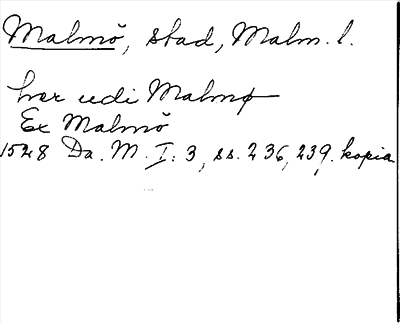 Malmö, stad, Malm. l.
her udi Malmø
Ex Malmö
1528 Da. M. I: 3, ss. 236, 239. kopia